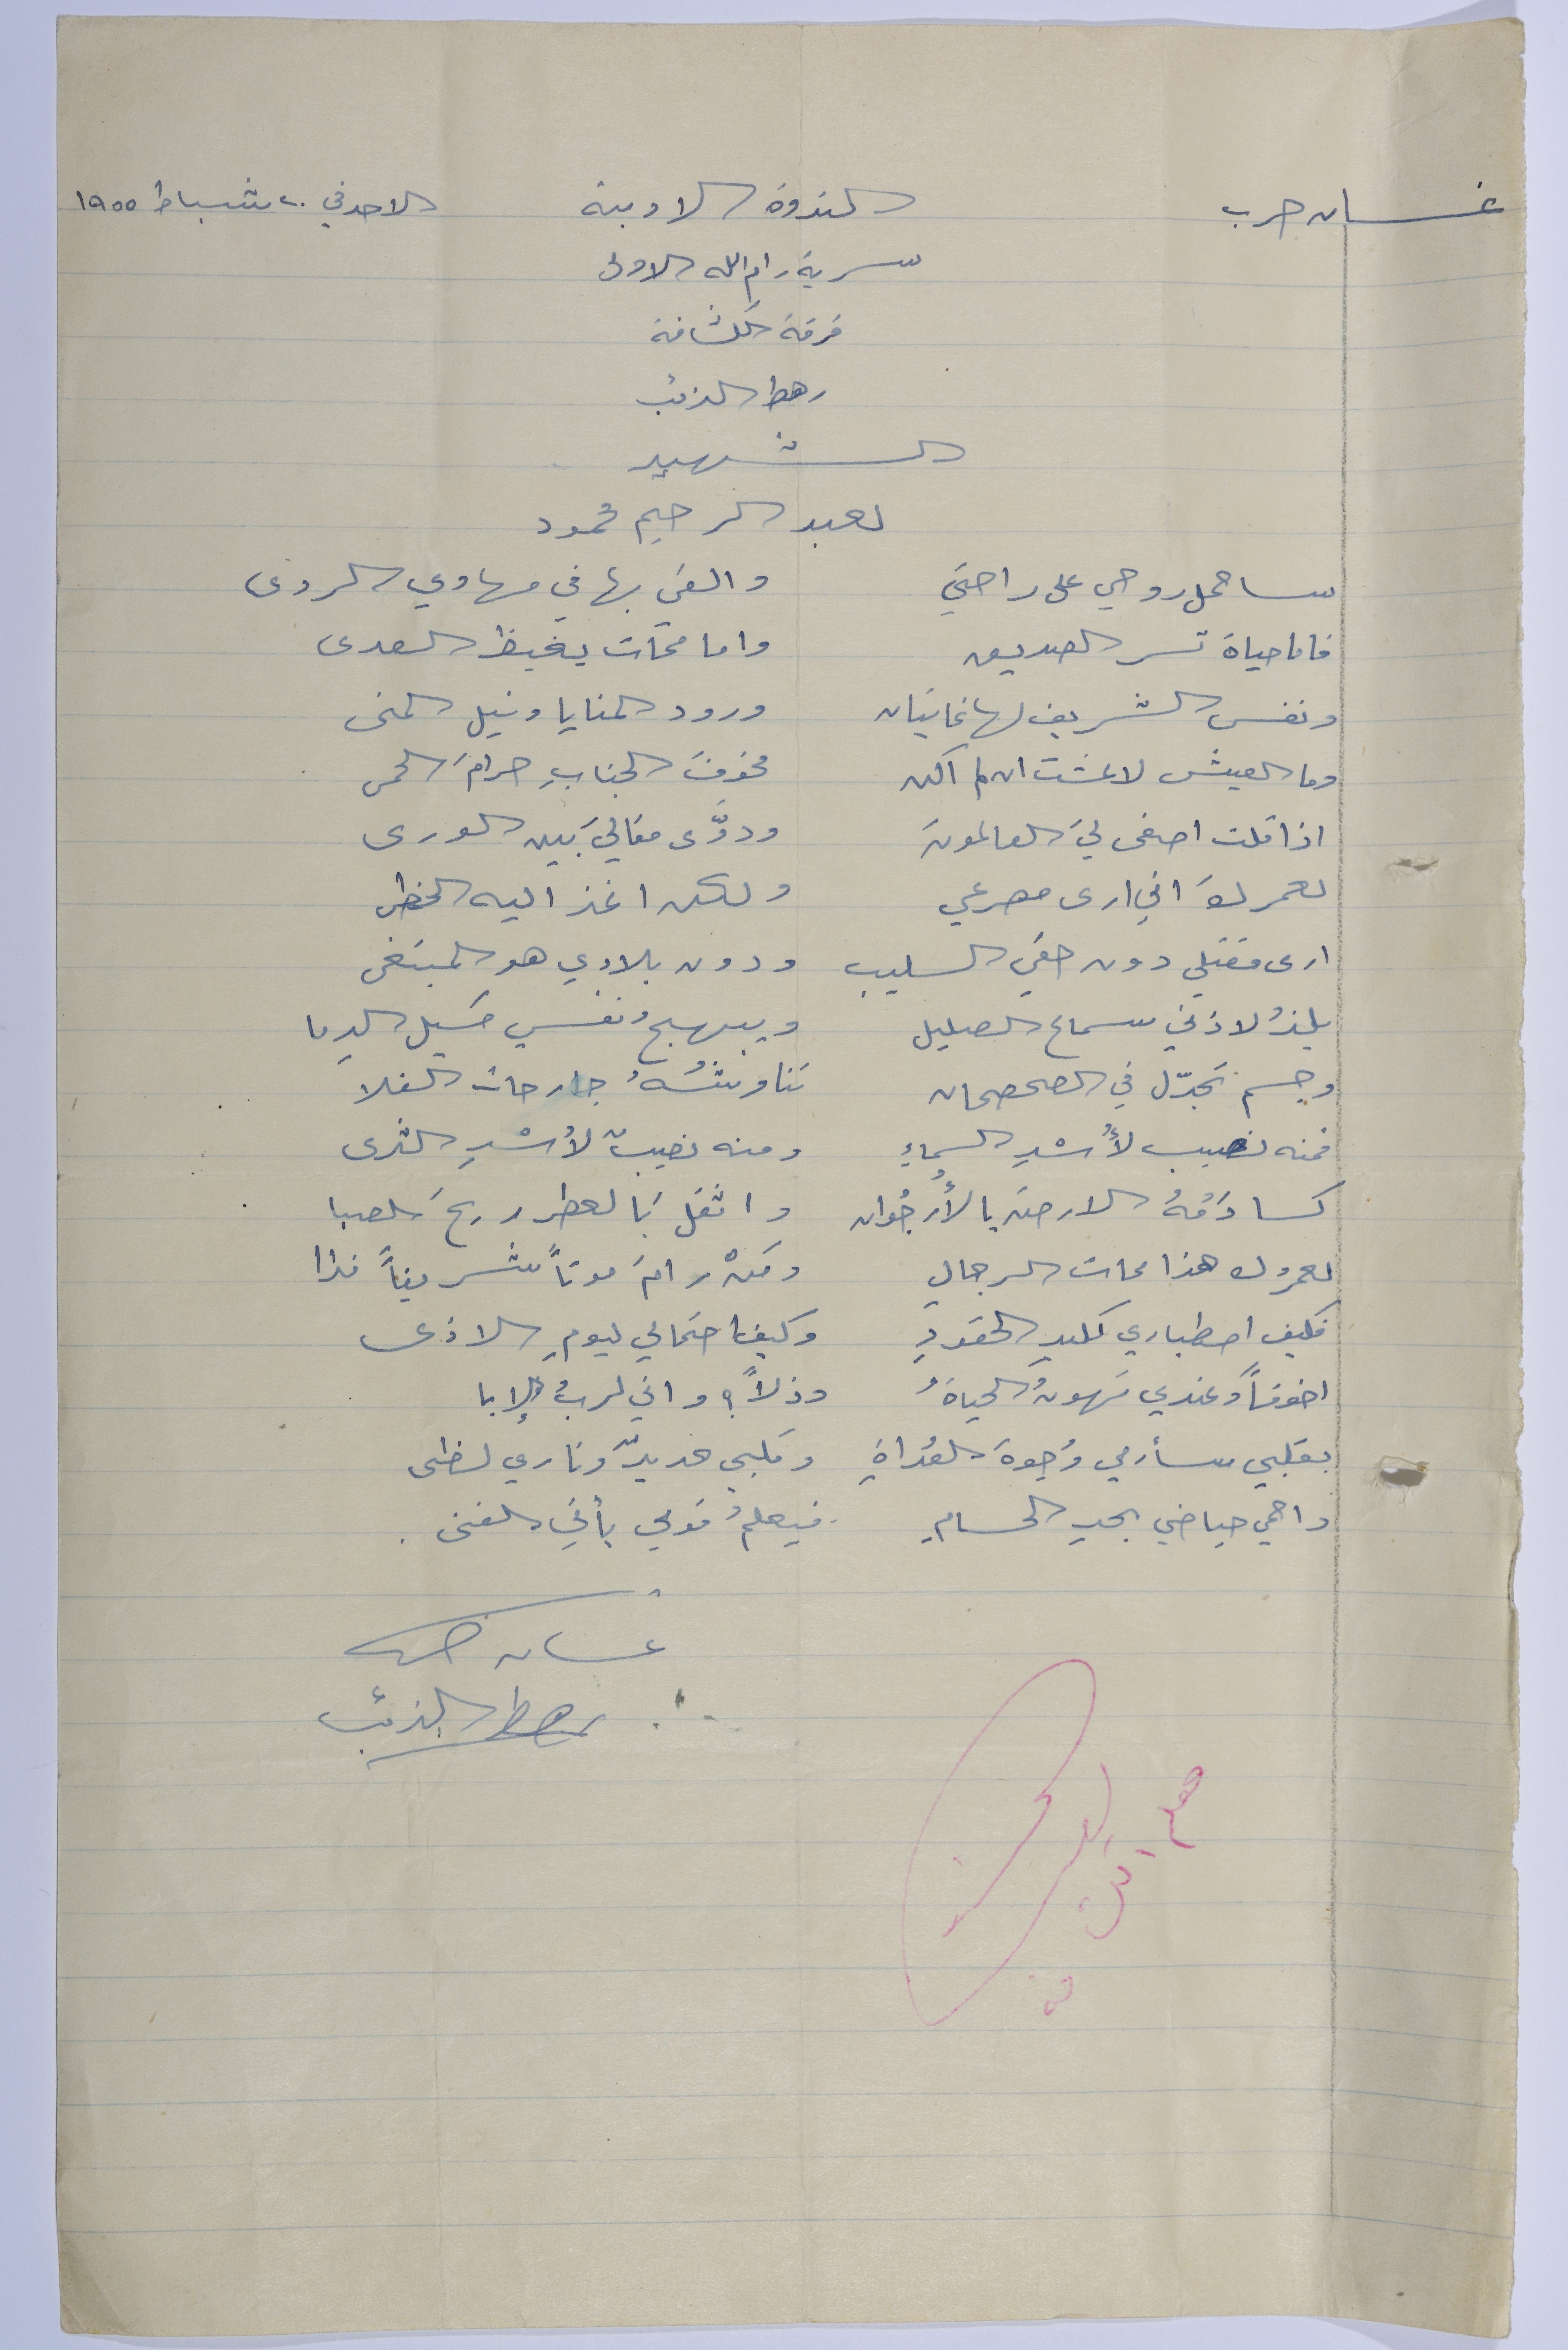 غسان حرب الندوة الادبية الاحد في ٢٠ شباط ١٩٥٥
سرية رام الله الاولى
فرقة الكشافة
رهط الذئب
الشهيد
لعبد الرحيم محمود
ساحمل روحي على راحتي والقي بها في مهاوي الردى
فاما حياة تسر الصديق واما ممات يغيظ العدى
ونفس الشريف لها غايتان ورود المنايا ونيل المنى
وما العيش لا عشت ان لم اكن مخوفَ الجنابِ حرامَ الحمى
اذا قلت اصغى ليَ العالمونَ ودوَّى مقاليَ بين الورى
لعمركَ اني ارى مصرعي ولكن اغذ اليه الخطى
ارى مقتلي دون حقي السليب ودون بلادي هو المبتغى
يلذُ لاذني سماع الصليل ويبهجُ نفسي مسيل الدما
وجسم تجدّل في الصحصحان تناوشُهُ جارحات الفلا
فمنه نصيب لأُسْدِ السماءِ ومنه نصيبٌ لأُسْدِ الثرى
كسا دَمُهُ الارضَ بالأُرجُوان واثقل بالعطر ريحَ الصبا
لعمرك هذا ممات الرجالِ ومَنْ رامَ موتاً شريفاً فذا
فكيف اصطباري لكيدِ الحقودِ وكيف احتمالي ليومِ الاذى
اخوفاً وعندي تهونُ الحياةُ وذلاً؟ واني لربُ الإبا
بقلبي سأرمي وُجوهَ العُداةِ وقلبي حديدٌ وناري لظى
واحمي حياضي بحدِ الحسامِ فيعلمُ قومي بأني الفتى.
غسان حرب
رهط الذئب